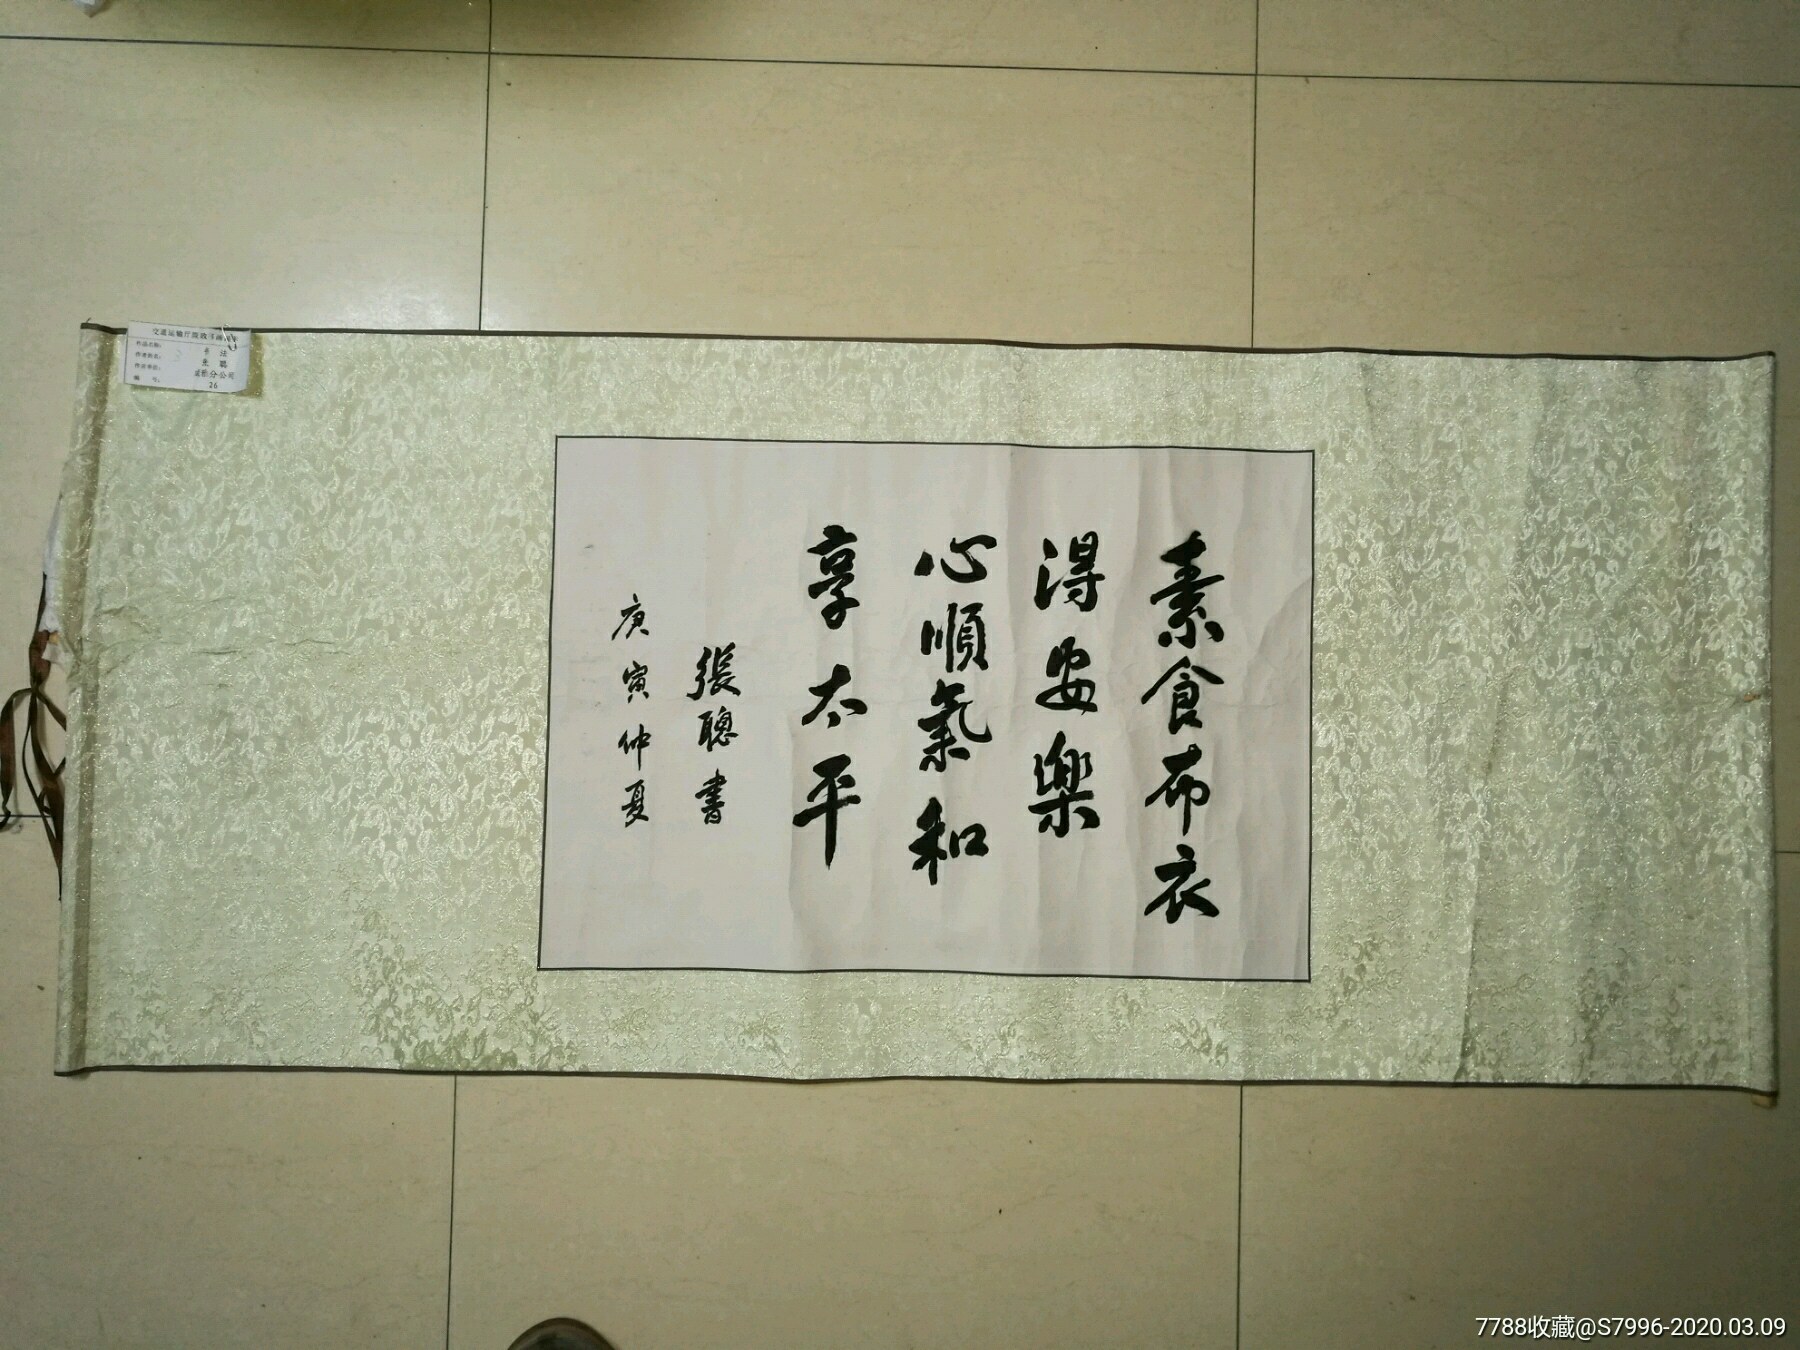 素食布衣
得安樂
心順氣和
享太平
張聰書
庚寅仲夏
作品名称: 书法
作者姓名: 张聪
作者单位: 成松分公司
编 号: 26
7788收藏@S7996-2020.03.09